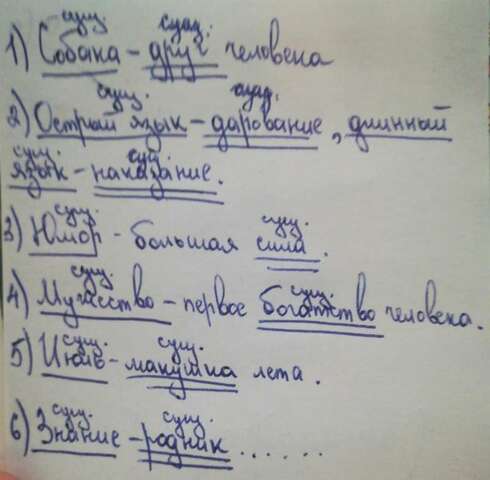 сущ. сущ.
1) Собака - друг человека
сущ. сущ.
2) Острый язык - дарование, длинный
сущ. сущ.
язык - наказание.
сущ. сущ.
3) Юмор - большая сила.
сущ. сущ.
4) Мужество - первое богатство человека.
сущ. сущ.
5) Июль - макушка лета.
сущ. сущ.
6) Знание - родник ......